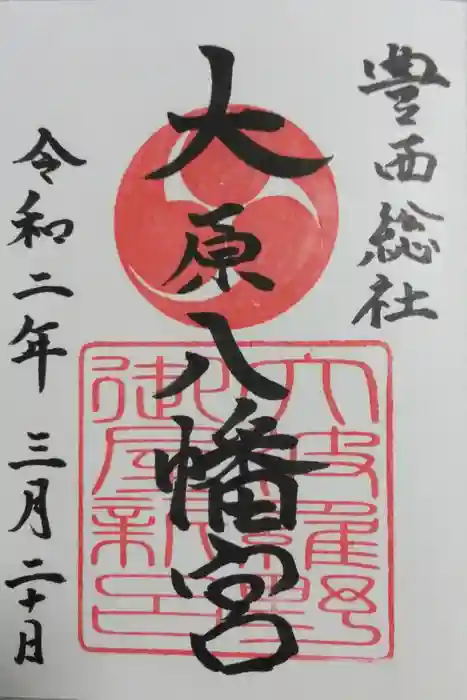 豊西総社
大原八幡宮
令和二年三月二十日